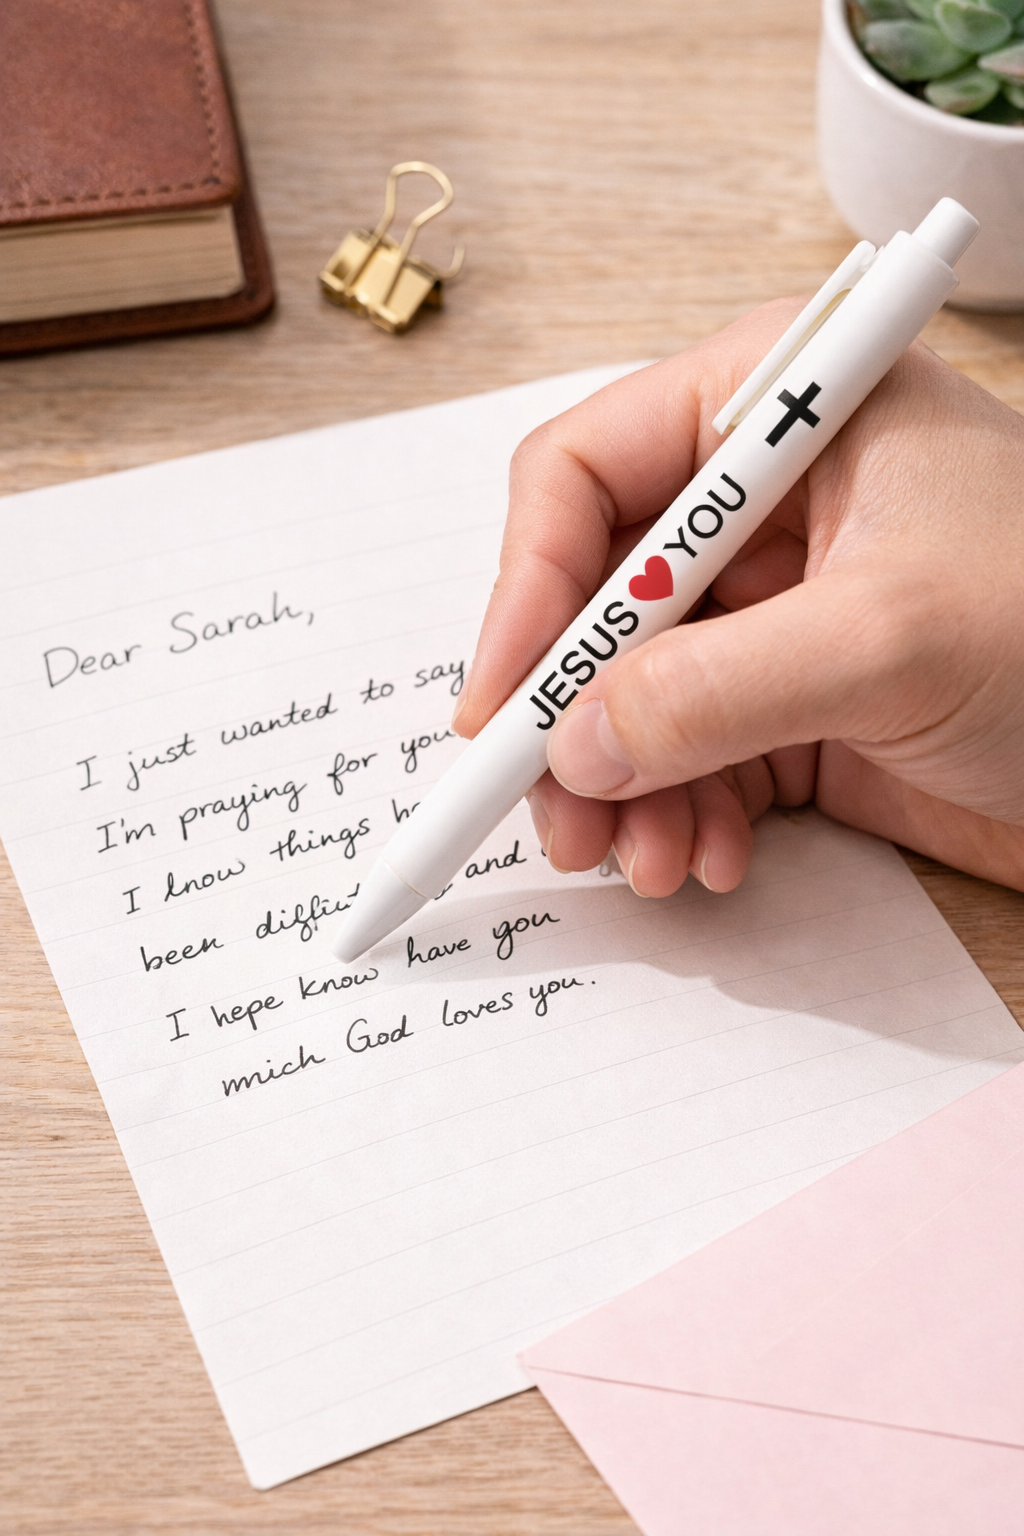 Dear Sarah,
I just wanted to say
I'm praying for you
I know things
been and
I hepe know have you
mnich God loves you.
JESUS ❤ YOU